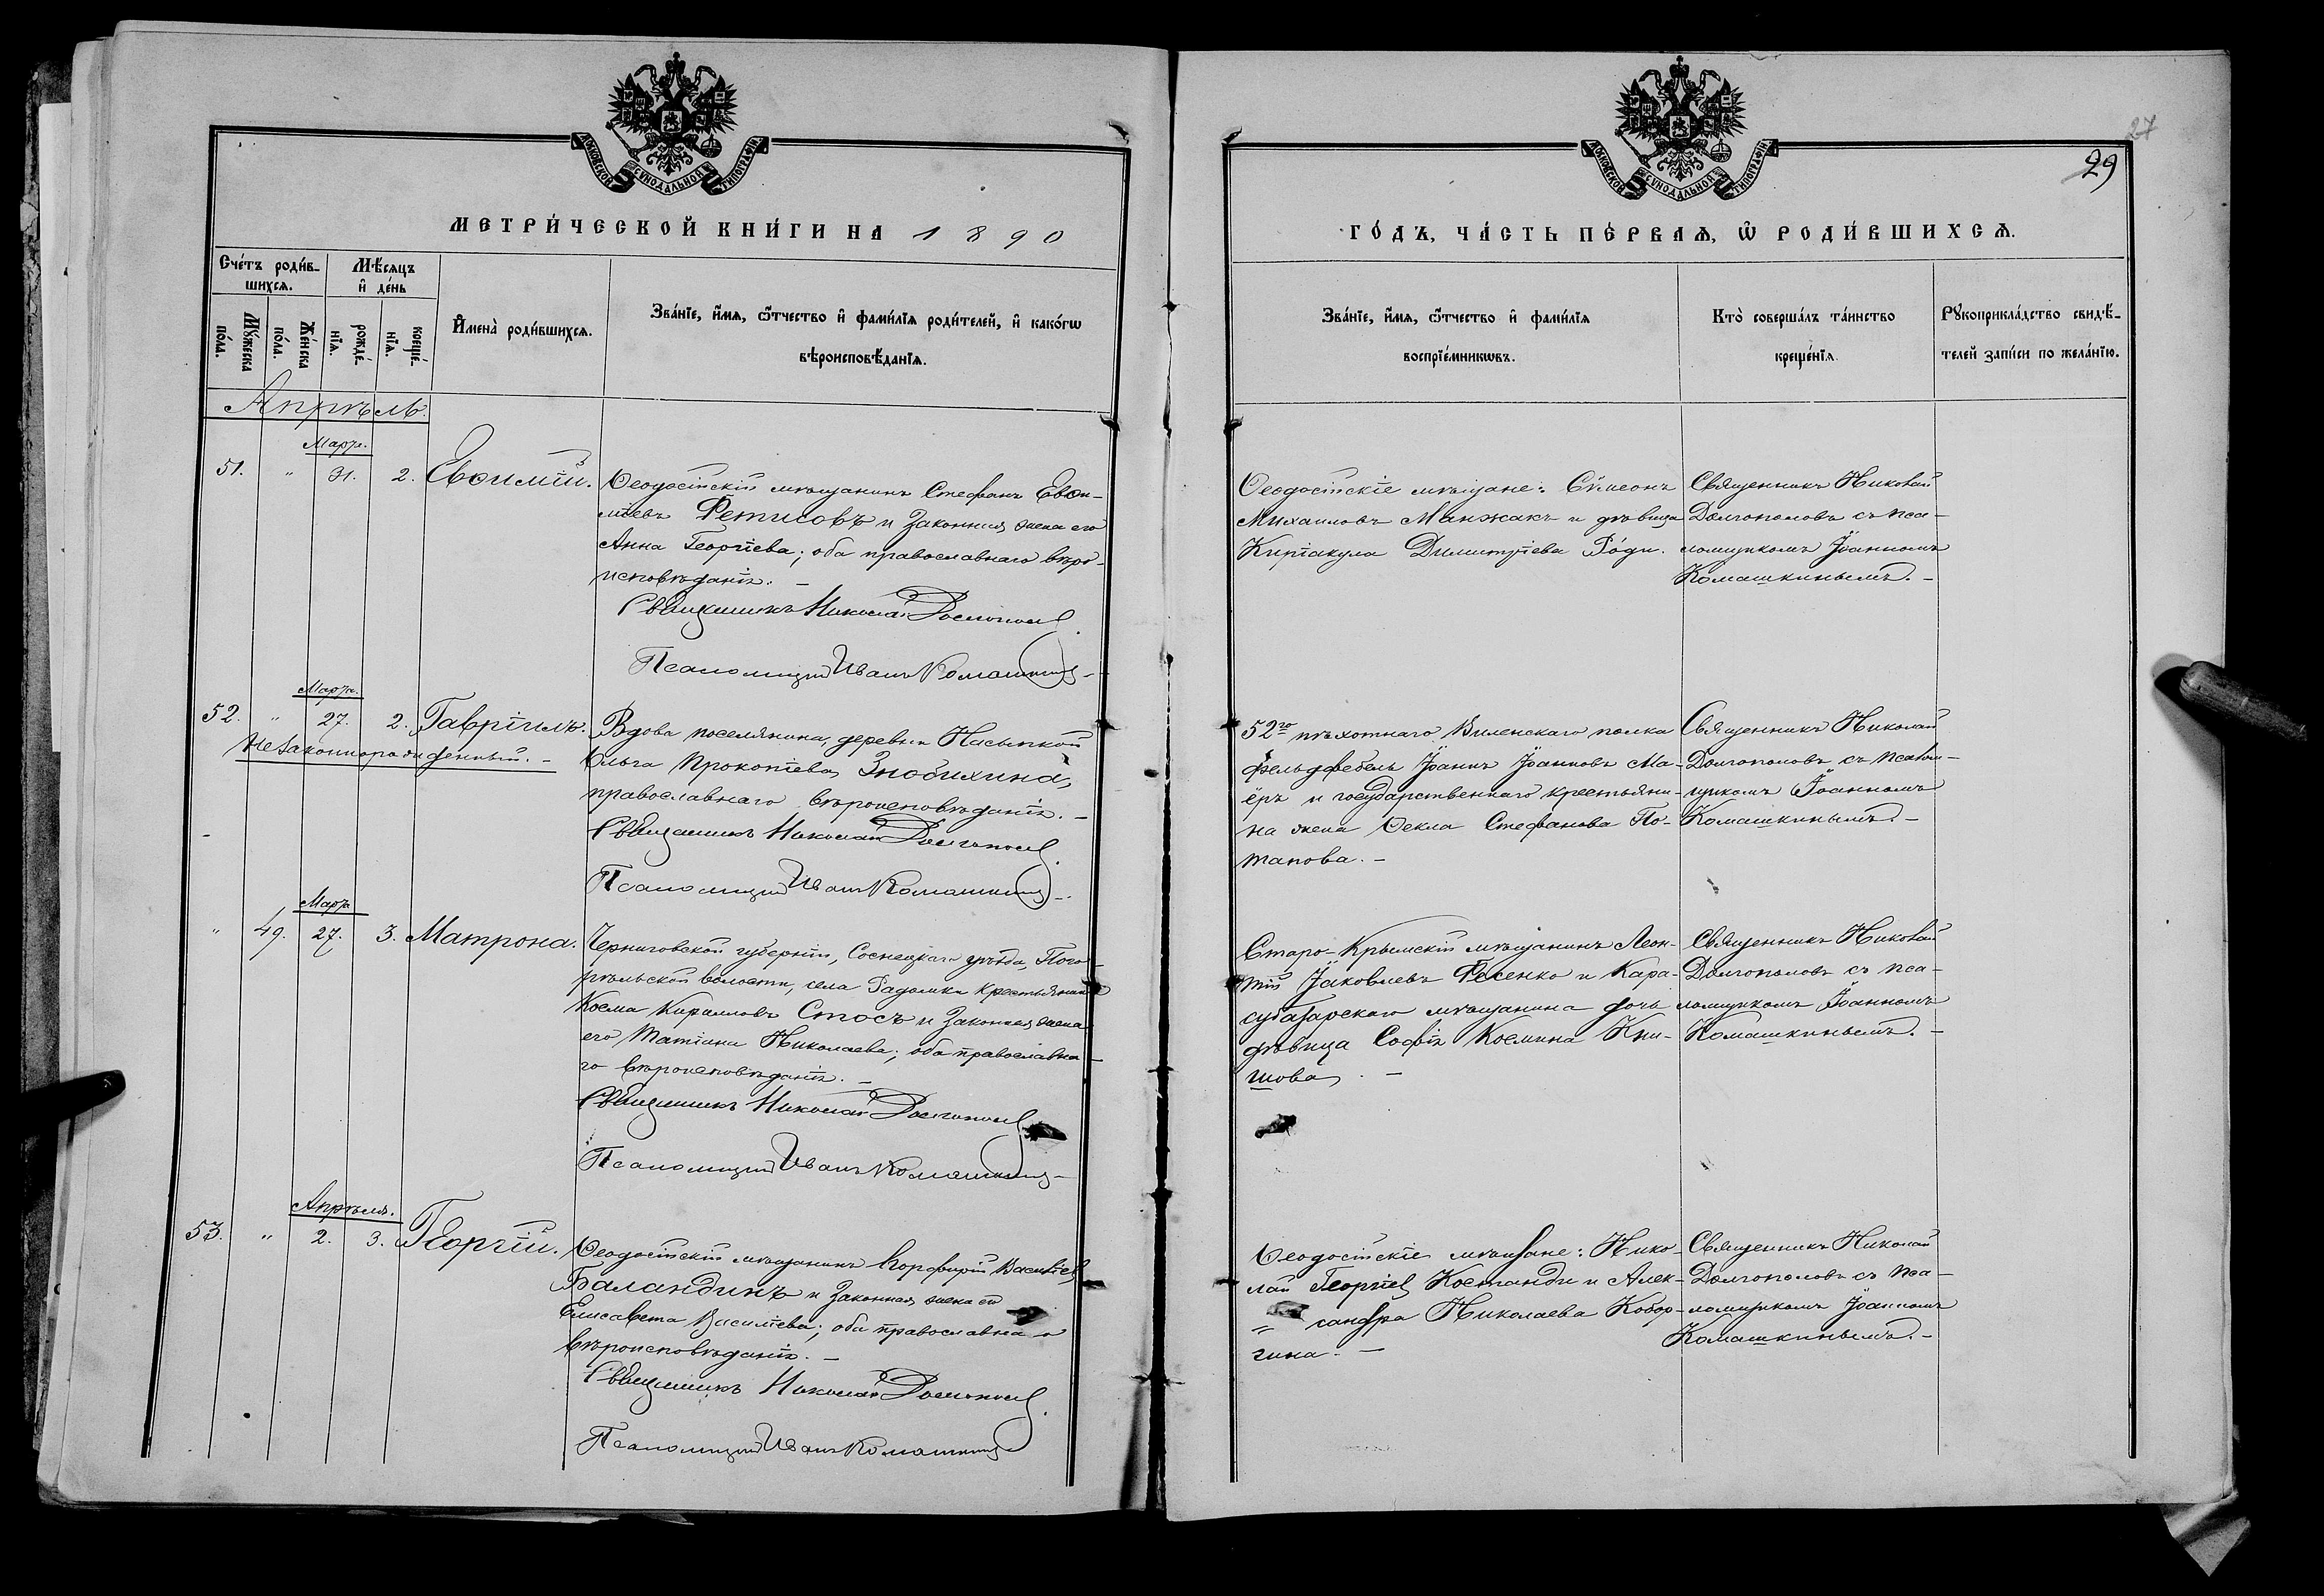 МОСКОВСКОЙ СѴНОДАЛЬНОЙ ТИПОГРАФІИ
МЕТРИ́ЧЕСКОЙ КНИ́ГИ НА 1890
Сче́тъ роди́в-
шихсѧ.
Мѣ́сѧцъ
и҆ де́нь
Мꙋ́жеска
по́ла.
Же́нска
по́ла.
рожде́-
нїѧ.
креще́-
нїѧ.
И҆мена̀ роди́вшихсѧ.
Зва́нїе, и҆́мѧ, ѻ҆́тчество и҆ фами́лїѧ роди́телей, и҆ како́гѡ
вѣроисповѣ́данїѧ.
Апрѣль.
Марта.
51. " 31. 2. Евѳимій.
Ѳеодосійскій мѣщанинъ Стефанъ Евѳи-
міевъ Фетисовъ и законная жена его
Анна Георгіева; оба православнаго вѣро-
исповѣданія. –
Священникъ Николай Долгополов
Псаломщик Иванъ Комашкинъ
Марта.
52. " 27. 2. Гавріилъ.
Незаконнорожденный. –
Вдова поселянина, деревни Насыпкой
Ольга Прокопіева Знобихина,
православнаго вѣроисповѣданія. –
Священникъ Николай Долгополов
Псаломщик Иванъ Комашкинъ
Марта
" 49. 27. 3. Матрона.
Черниговской губерніи, Сосницкаго уѣзда, Пого-
рѣльской волости, села Радомки крестьянинъ
Косма Кирилловъ Стось и законная жена
его Татіана Николаева; оба православна-
го вѣроисповѣданія. –
Священникъ Николай Долгополов
Псаломщик Иванъ Комашкинъ
Апрѣля.
53. " 2. 3. Георгій.
Ѳеодосійскій мѣщанинъ Порфирій Василіев
Баландинъ и законная жена его
Елисавета Василіева; оба православнаго
вѣроисповѣданія. –
Священникъ Николай Долгополов
Псаломщик Иванъ Комашкинъ
27
29
МОСКОВСКОЙ СѴНОДАЛЬНОЙ ТИПОГРАФІИ
ГО́ДЪ, ЧА́СТЬ ПЕ́РВАѦ, Ѡ҆ РОДИ́ВШИХСѦ.
Зва́нїе, и҆́мѧ, ѻ҆́тчество и҆ фами́лїѧ
воспрїе́мникѡвъ.
Кто̀ соверша́лъ та́инство
креще́нїѧ.
Рꙋкоприкла́дство свидѣ́-
телей за́писи по жела́нїю.
Ѳеодосійскіе мѣщане: Сѵмеонъ
Михаиловъ Манжакъ и дѣвица
Киріакула Димитріева Ро́ди.
Священникъ Николай
Долгополовъ съ пса-
ломщикомъ Іоанномъ
Комашкинымъ. –
52го пѣхотнаго Виленскаго полка
фельдфебель Іоаннъ Іоанновъ Ма-
ёръ и государственнаго крестьяни-
на жена Ѳекла Стефанова По-
тапова. –
Священникъ Николай
Долгополовъ съ псалом-
щикомъ Іоанномъ
Комашкинымъ. –
Старо-Крымскій мѣщанинъ Леон-
тій Іаковлевъ Фесенко и Кара-
субазарскаго мѣщанина дочь
дѣвица Софія Космина Кни-
шова –
Священникъ Николай
Долгополовъ съ пса-
ломщикомъ Іоанномъ
Комашкинымъ. –
Ѳеодосійскіе мѣщане: Нико-
лай Георгіев Костанди и Алек-
сандра Николаева Кобор-
гина. –
Священникъ Николай
Долгополовъ съ пса-
ломщикомъ Іоанномъ
Комашкинымъ. –